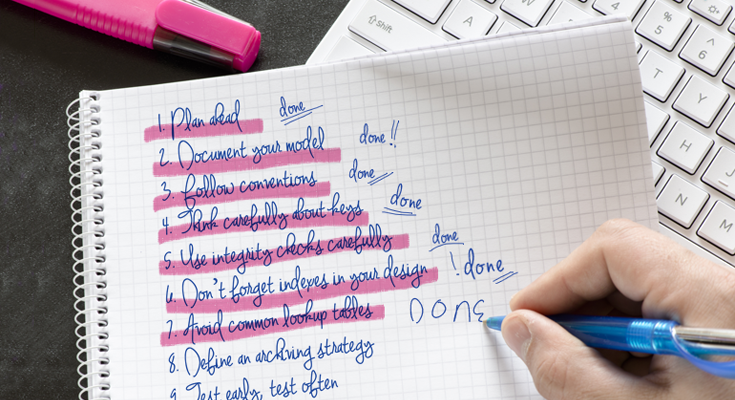 1. Plan ahead done
2. Document your model done!!
3. Follow conventions done
4. Think carefully about keys done
5. Use integrity checks carefully done
6. Don't forget indexes in your design ! done
7. Avoid common lookup tables DONE
8. Define an archiving strategy
9. Test early, test often
Shift
A
%
5
^
6
T
Y
H
J
N
M